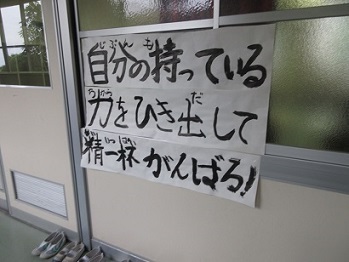 自分の持っている
力をひき出して
精一杯がんばる!